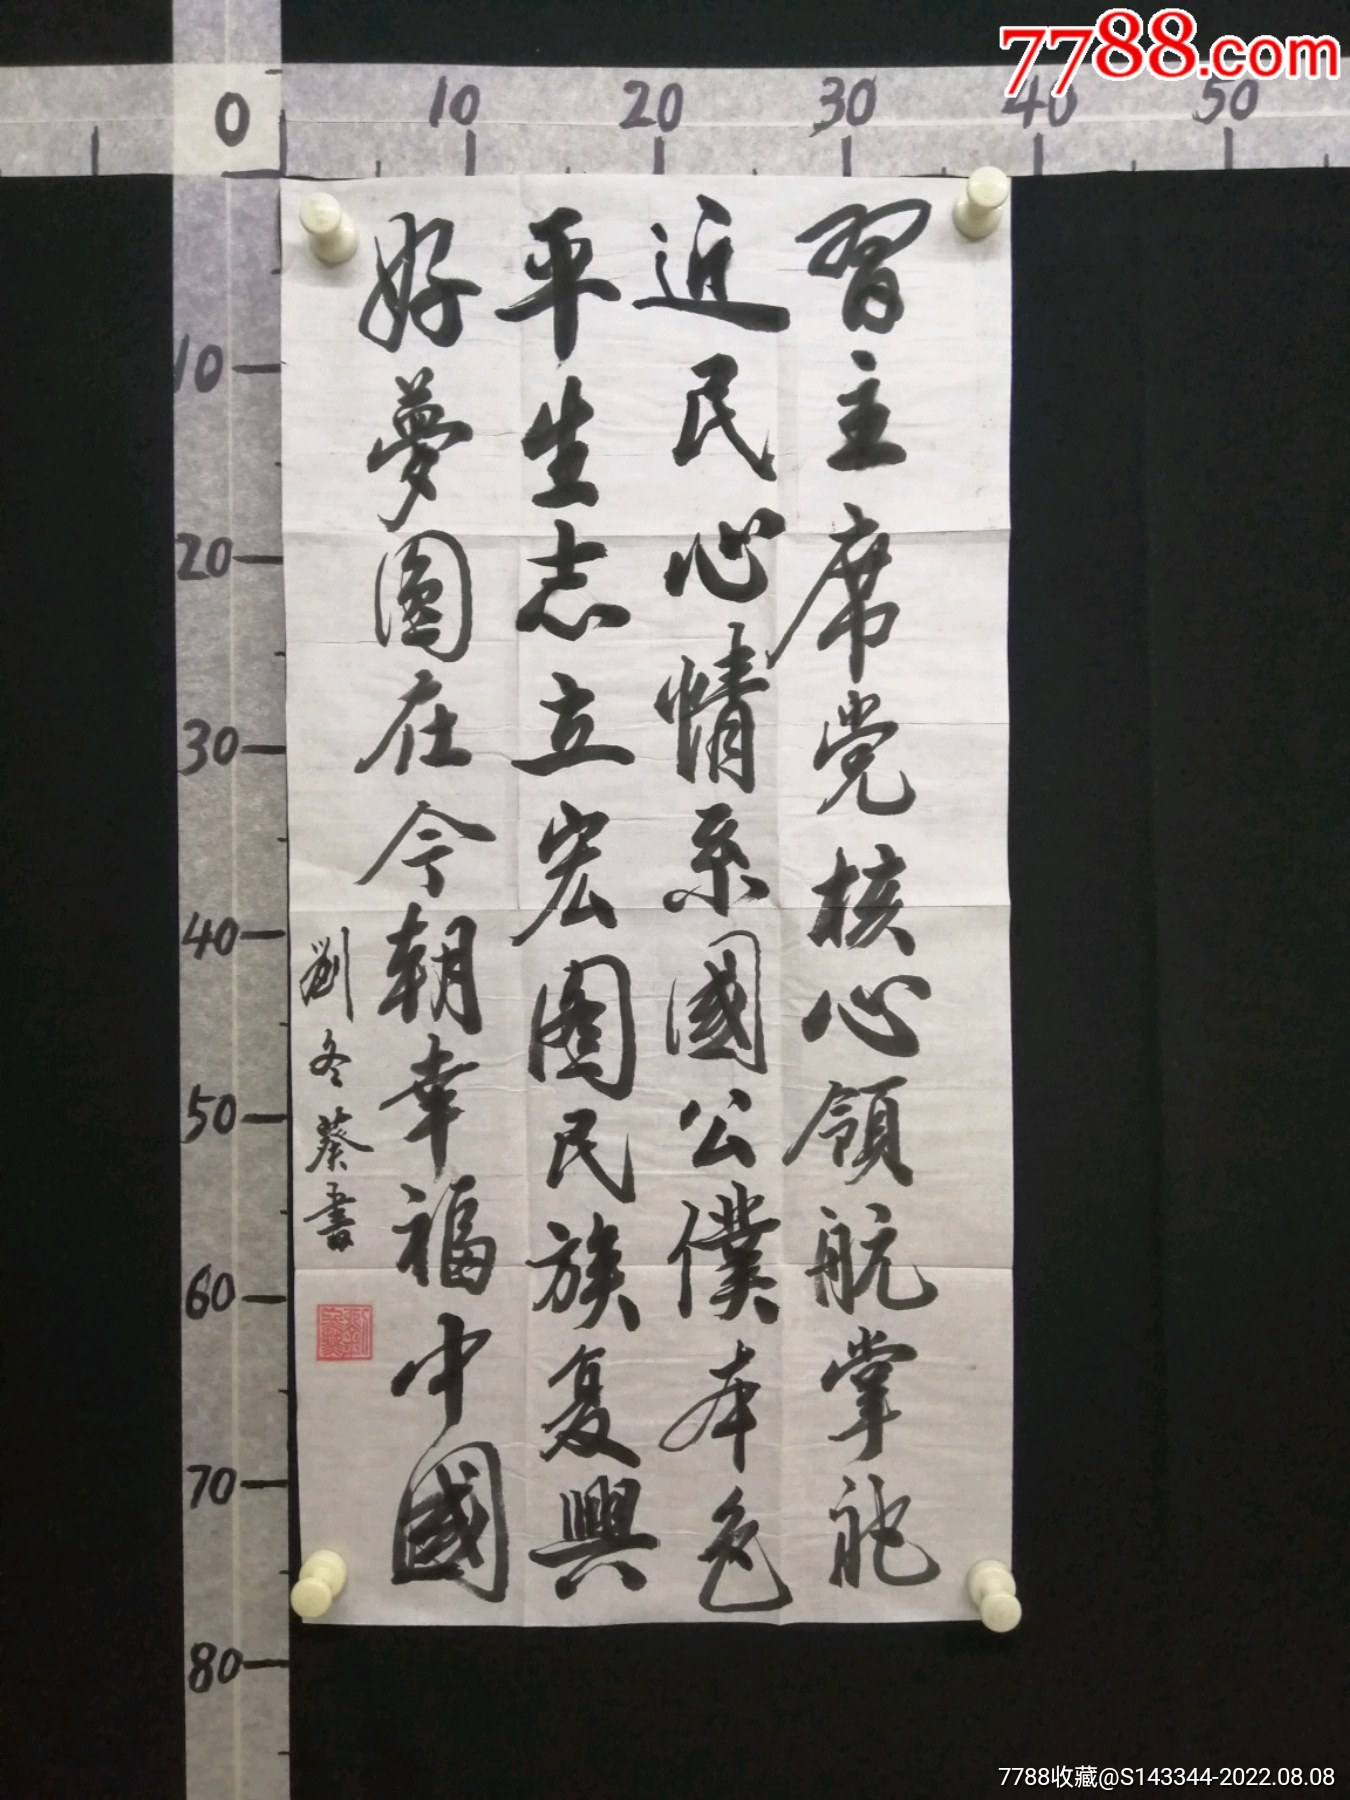 7788.com
0 10 20 30 40 50
10
20
30
40
50
60
70
80
習主席党核心領航掌舵
近民心情系國公僕本色
平生志立宏圖民族复興
好夢圓在今朝幸福中國
劉冬葵書
7788收藏@S143344-2022.08.08